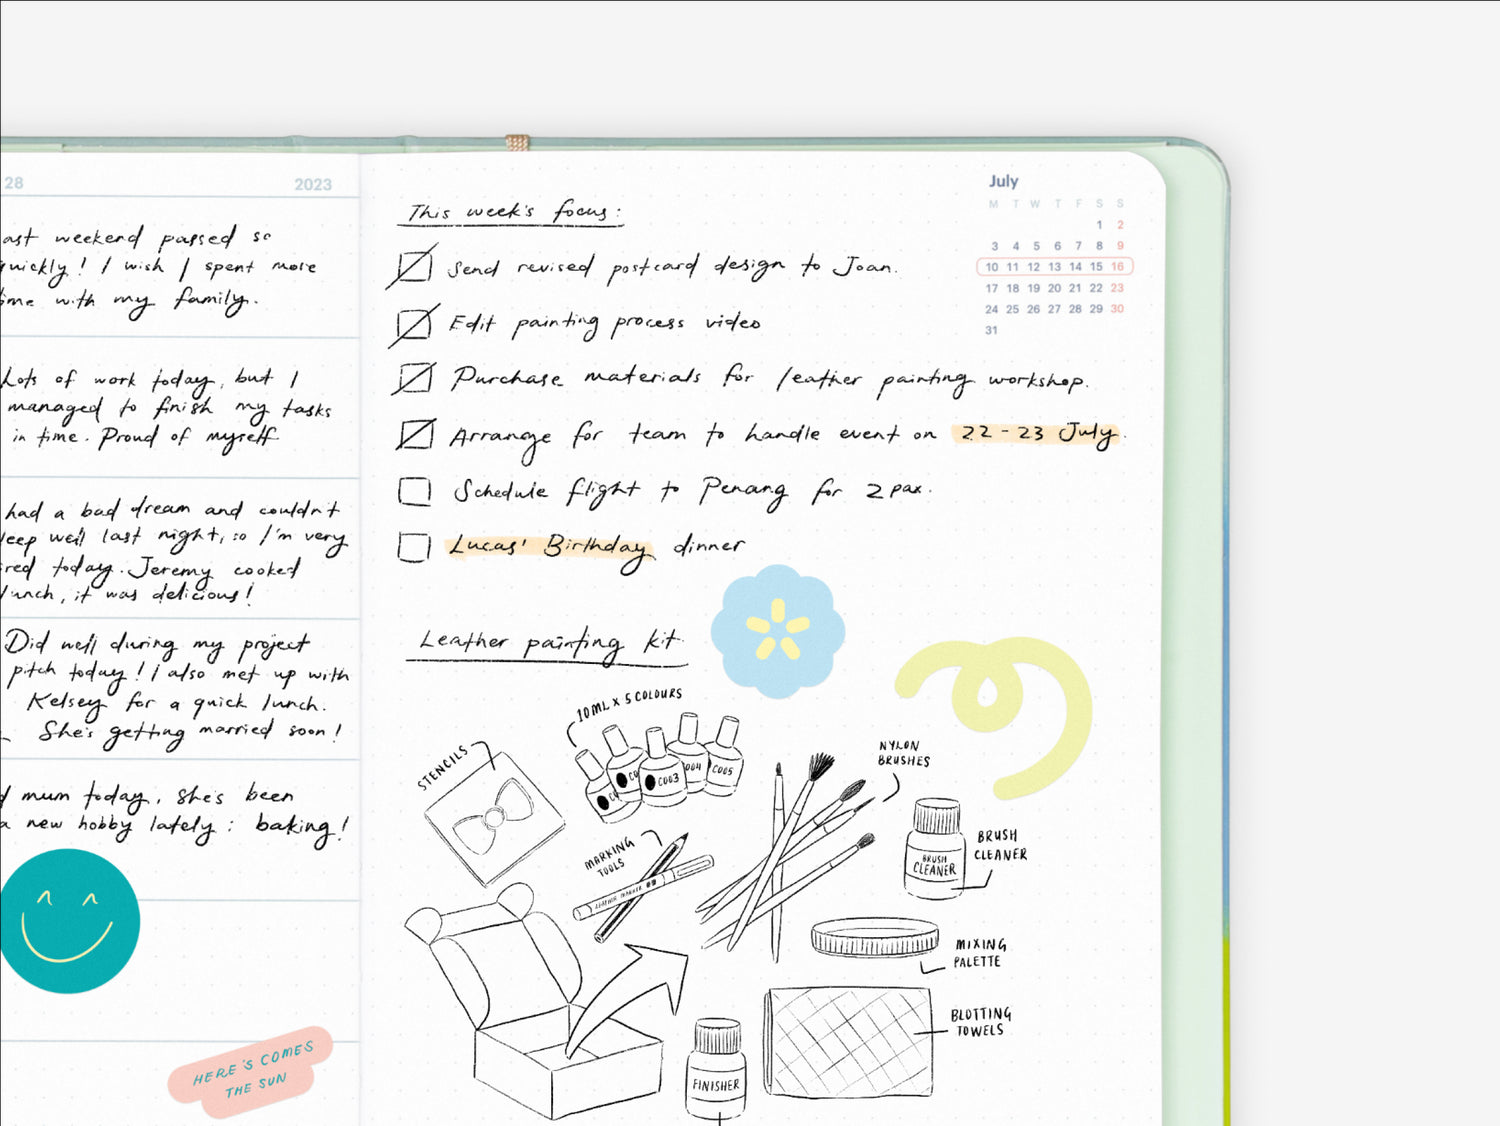 28
2023
ast weekend passed so
quickly! I wish I spent more
time with my family.
Lots of work today, but I
managed to finish my tasks
in time. Proud of myself.
had a bad dream and couldn't
leep well last night, so I'm very
red today. Jeremy cooked
lunch, it was delicious!
Did well during my project
pitch today! I also met up with
Kelsey for a quick lunch.
She's getting married soon!
d mum today. She's been
a new hobby lately: baking!
HERE'S COMES
THE SUN
This week's focus:
Send revised postcard design to Joan.
Edit painting process video
Purchase materials for leather painting workshop.
Arrange for team to handle event on 22-23 July.
Schedule flight to Penang for 2 pax.
Lucas' Birthday dinner
July
M T W T F S S
1 2
3 4 5 6 7 8 9
10 11 12 13 14 15 16
17 18 19 20 21 22 23
24 25 26 27 28 29 30
31
Leather painting kit
10ML X 5 COLOURS
STENCILS
CO
C003
004
C005
NYLON
BRUSHES
MARKING
TOOLS
LEATHER MARKER
BRUSH
CLEANER
BRUSH
CLEANER
MIXING
PALETTE
BLOTTING
TOWELS
FINISHER